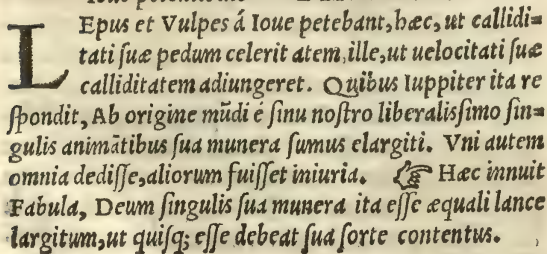 LEpus et Vulpes á Ioue petebant, hæc, ut callidi=
tati suæ pedum celeritatem, ille, ut uelocitati suæ
calliditatem adiungeret. Quibus Iuppiter ita re
spondit, Ab origine mūdi é sinu nostro liberalissimo sin=
gulis animātibus sua munera sumus elargiti. Vni autem
omnia dedisse, aliorum fuisset iniuria. ☞ Hæc innuit
Fabula, Deum singulis sua munera ita esse æquali lance
largitum, ut quisq; esse debeat sua sorte contentus.